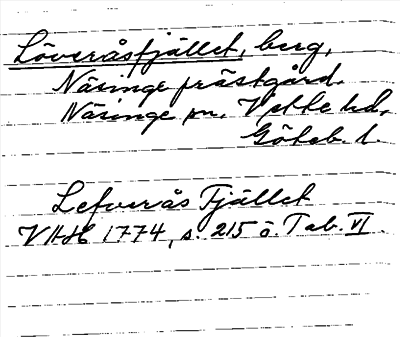 Löveråsfjället, berg,
Näsinge prästgård.
Näsinge sn. Vette hd,
Göteb. l.
Lefverås Fjället
VHH 1774, s. 215 o. Tab. VI